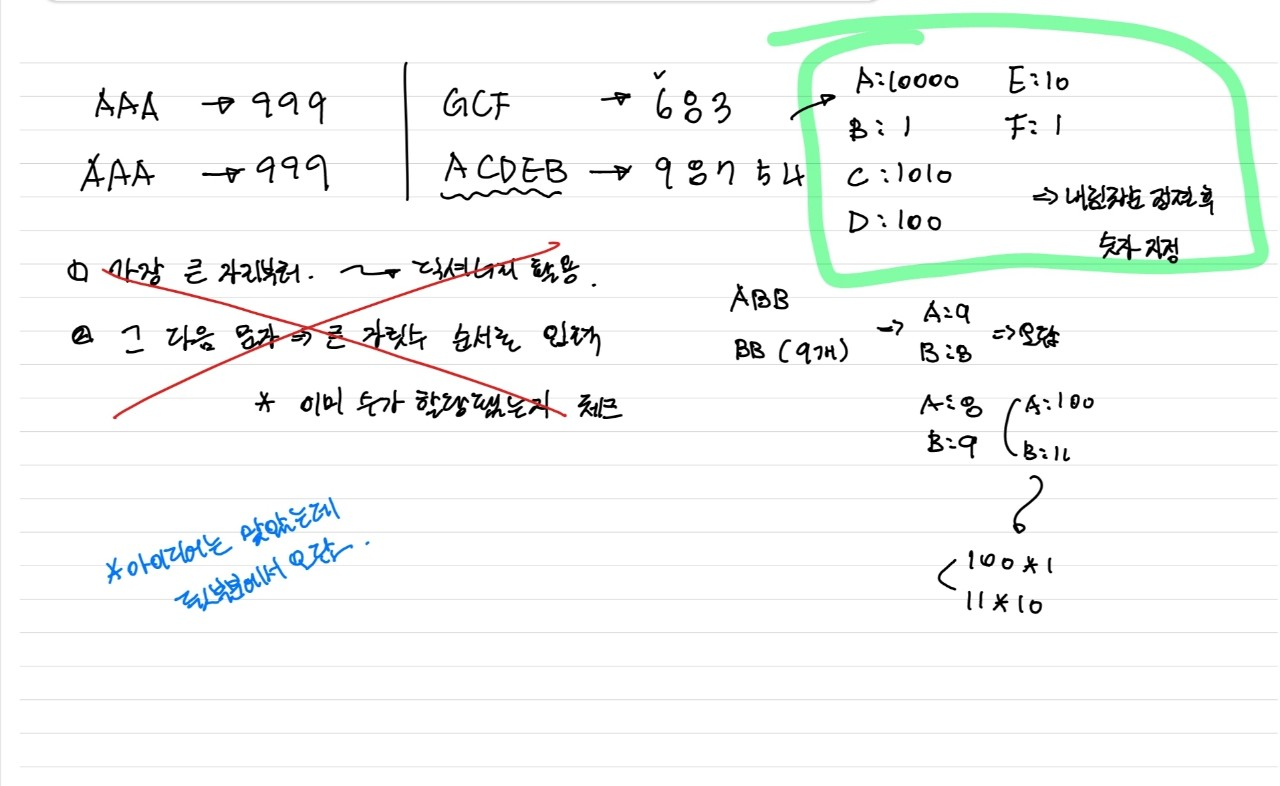 AAA → 999
AAA → 999
GCF → 683
ACDEB → 98754
A:10000 E:10
B: 1 F: 1
C:1010
D:100
⇒ 내림차순 정렬 후
숫자 지정
① 가장 큰 자리부터. → 딕셔너리 활용.
② 그 다음 문자 ⇒ 큰 자릿수 순서로 입력
* 이미 수가 할당됐는지 체크
ABB
BB (9개)
→ A:9
B:8
⇒오답
A:8
B:9
A:100
B:11
100*1
11*10
*아이디어는 맞았는데
뒷부분에서 오답.